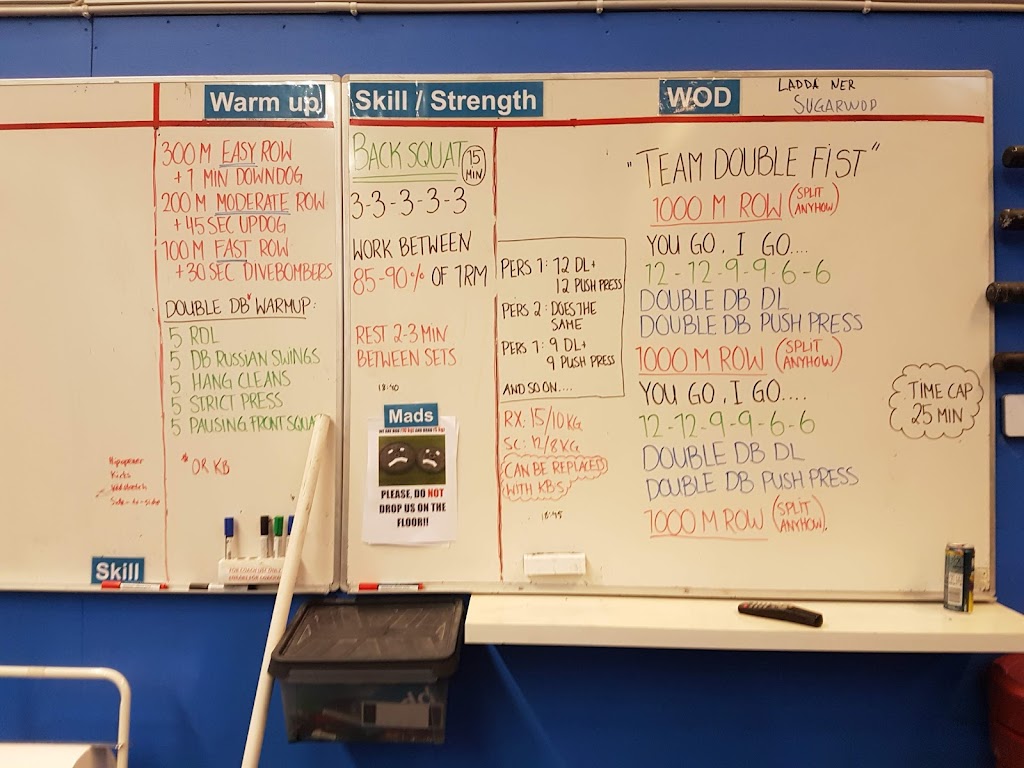 Warm up
300 M EASY ROW
+ 1 MIN DOWNDOG
200 M MODERATE ROW
+ 45 SEC UPDOG
100 M FAST ROW
+ 30 SEC DIVEBOMBERS
DOUBLE DB* WARMUP:
5 RDL
5 DB RUSSIAN SWINGS
5 HANG CLEANS
5 STRICT PRESS
5 PAUSING FRONT SQUA
* OR KB
Side-to-side
Skill
Skill / Strength
BACK SQUAT
15 MIN
3-3-3-3-3
WORK BETWEEN
85-90% OF 1RM
REST 2-3 MIN
BETWEEN SETS
18:40
Mads
PLEASE, DO NOT
DROP US ON THE
FLOOR!!
WOD
LADDA NER
SUGARWOD
"TEAM DOUBLE FIST"
1000 M ROW (SPLIT ANYHOW)
YOU GO, I GO....
12-12-9-9-6-6
DOUBLE DB DL
DOUBLE DB PUSH PRESS
1000 M ROW (SPLIT ANYHOW)
YOU GO, I GO....
12-12-9-9-6-6
DOUBLE DB DL
DOUBLE DB PUSH PRESS
1000 M ROW (SPLIT ANYHOW).
PERS 1: 12 DL+
12 PUSH PRESS
PERS 2: DOES THE
SAME
PERS 1: 9 DL+
9 PUSH PRESS
AND SO ON....
RX: 15/10KG
SC: 12/8KG
CAN BE REPLACED
WITH KBS
18:45
TIME CAP
25 MIN